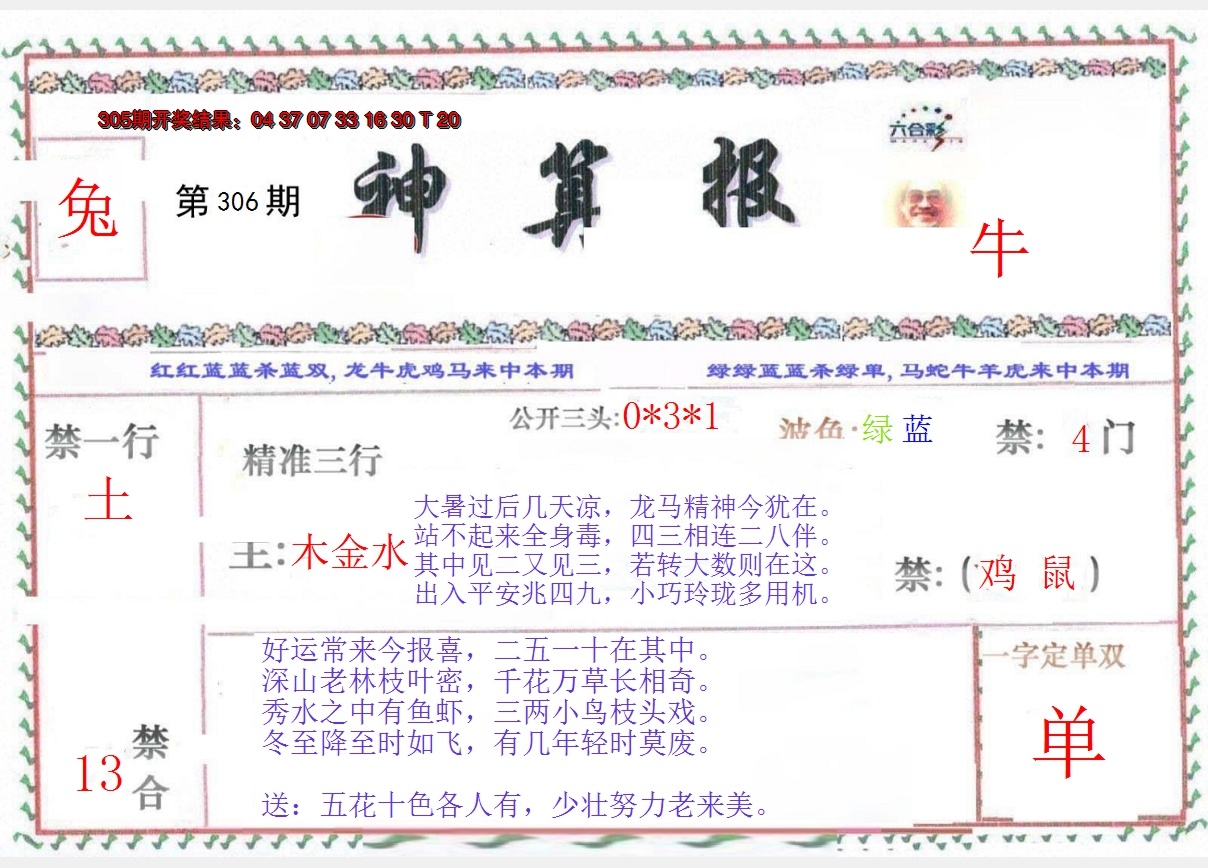 305期开奖结果：04 37 07 33 16 30 T 20
六合彩
兔
第306期
神算报
牛
红红蓝蓝杀蓝双,龙牛虎鸡马来中本期
绿绿蓝蓝杀绿单,马蛇牛羊虎来中本期
公开三头:0*3*1
波色·绿 蓝
禁一行
土
精准三行
主:木金水
禁: 4门
大暑过后几天凉，龙马精神今犹在。
站不起来全身毒，四三相连二八伴。
其中见二又见三，若转大数则在这。
出入平安兆四九，小巧玲珑多用机。
禁:(鸡 鼠)
好运常来今报喜，二五一十在其中。
深山老林枝叶密，千花万草长相奇。
秀水之中有鱼虾，三两小鸟枝头戏。
冬至降至时如飞，有几年轻时莫废。
送：五花十色各人有，少壮努力老来美。
一字定单双
单
13
禁合